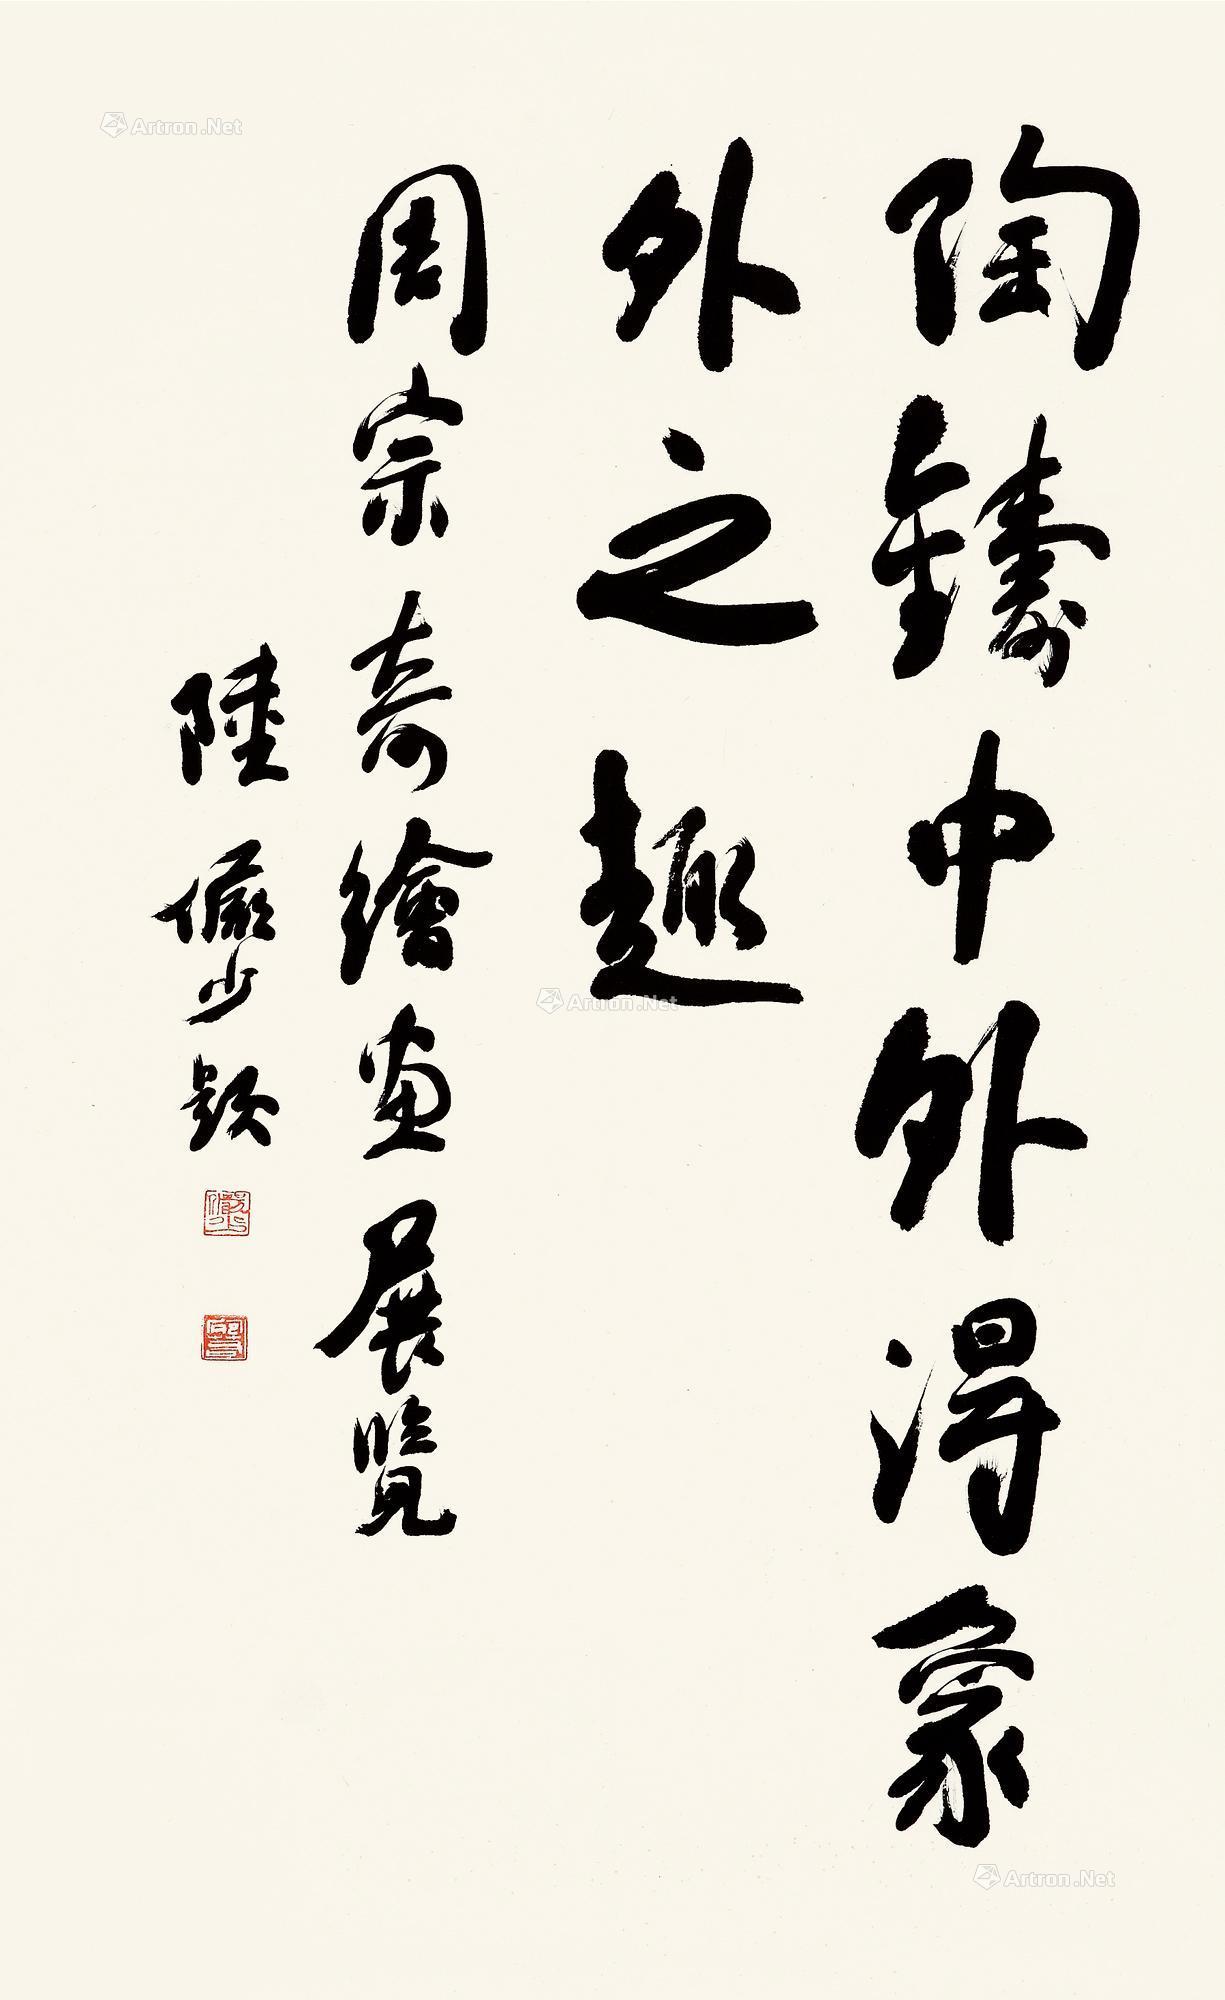 陶鑄中外得象
外之趣
周宗琦繪畫展覽
陸儼少題
Artron.Net
Artron.Net
Artron.Net